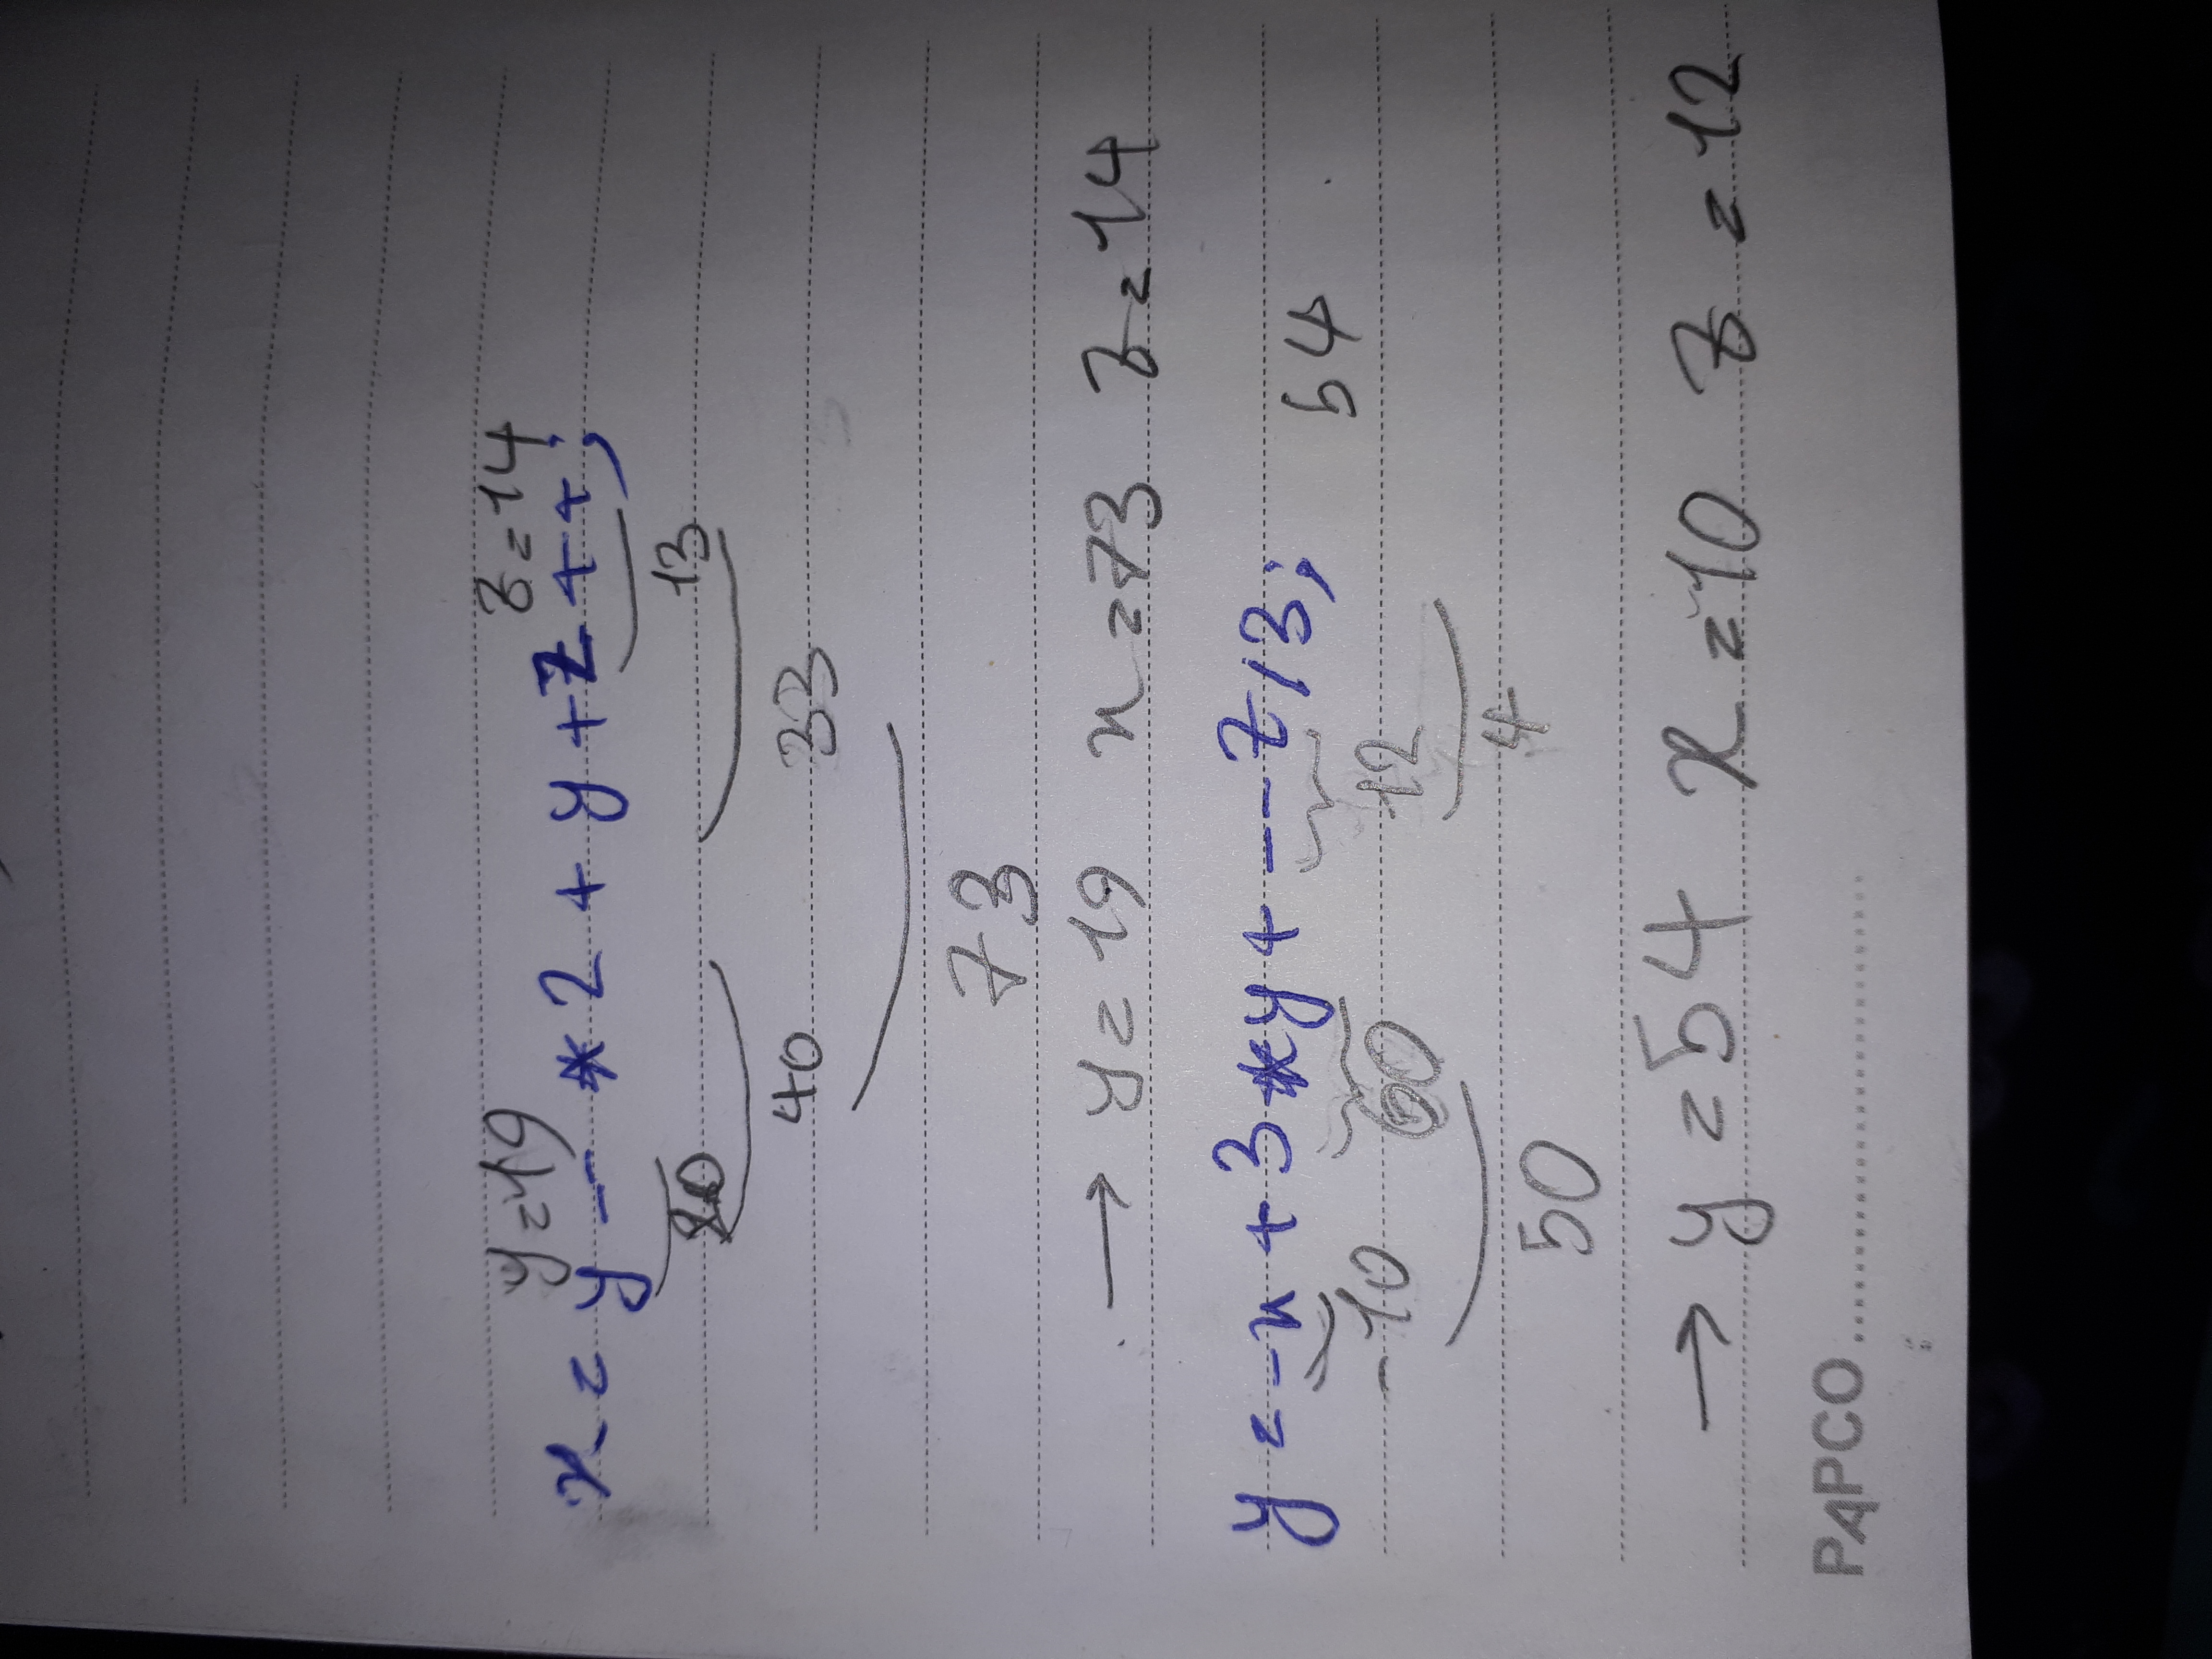 y=19 z=14
x = y -- * 2 + y + z ++ ;
20 13
40 33
73
→ y = 19 x = 73 z = 14
y = -x + 3 * y + --z / 3 ; 54
-10 60 12
4
50
→ y = 54 x = 10 z = 12
PAPCO